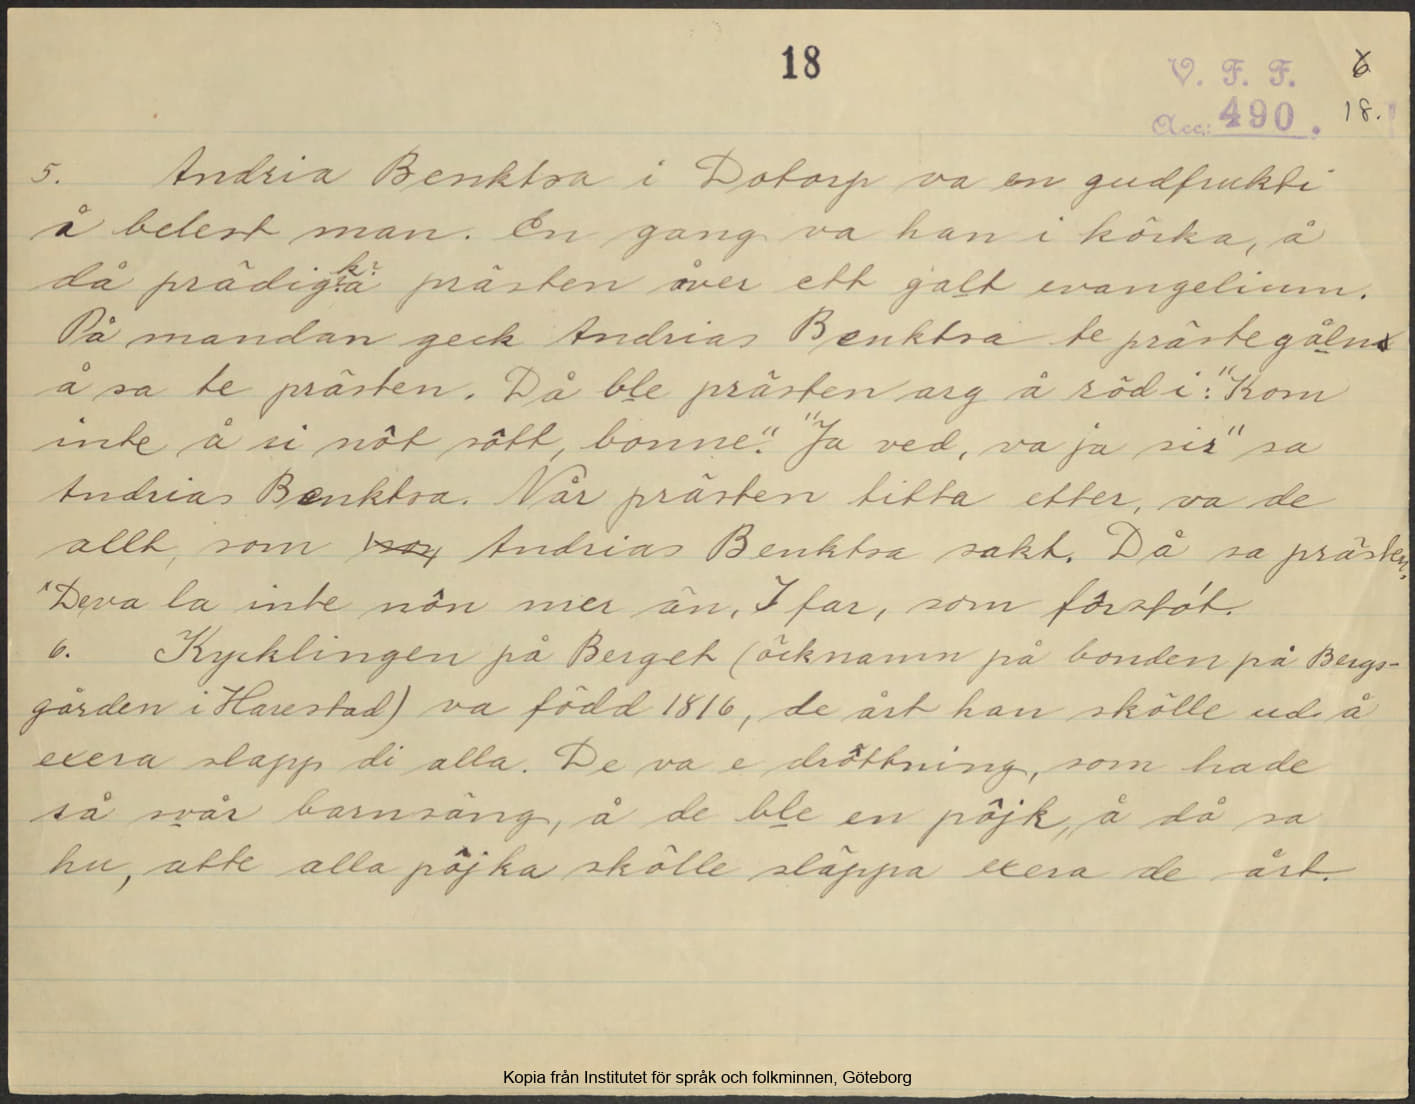 18
V. F. F.
6
Acc: 490.
18.
5. Andria Benktsa i Dotorp va en gudfrukti
å belest man. En gang va han i körka, å
då prädiga prästen över ett galt evangelium.
På mandan geck Andrias Benktsa te prästegåln
å sa te prästen. Då ble prästen arg å röd i: "Kom
inte å si nôt sôtt, bonne". "Ja ved, va ja sir" sa
Andrias Benktsa. Når prästen titta etter, va de
allt, som Andrias Benktsa sakt. Då sa prästen,
"Deva la inte nôn mer än, I far, som förstöt.
6. Kycklingen på Berget (öcknamn på bonden på Bergs-
gården i Harestad) va född 1816, de årt han skölle ud å
exera slapp di alla. De va e drôttning, som hade
så svår barnsäng, å de ble en pôjk, å då sa
hu, atte alla pôjka skölle släppa exera de årt.
Kopia från Institutet för språk och folkminnen, Göteborg